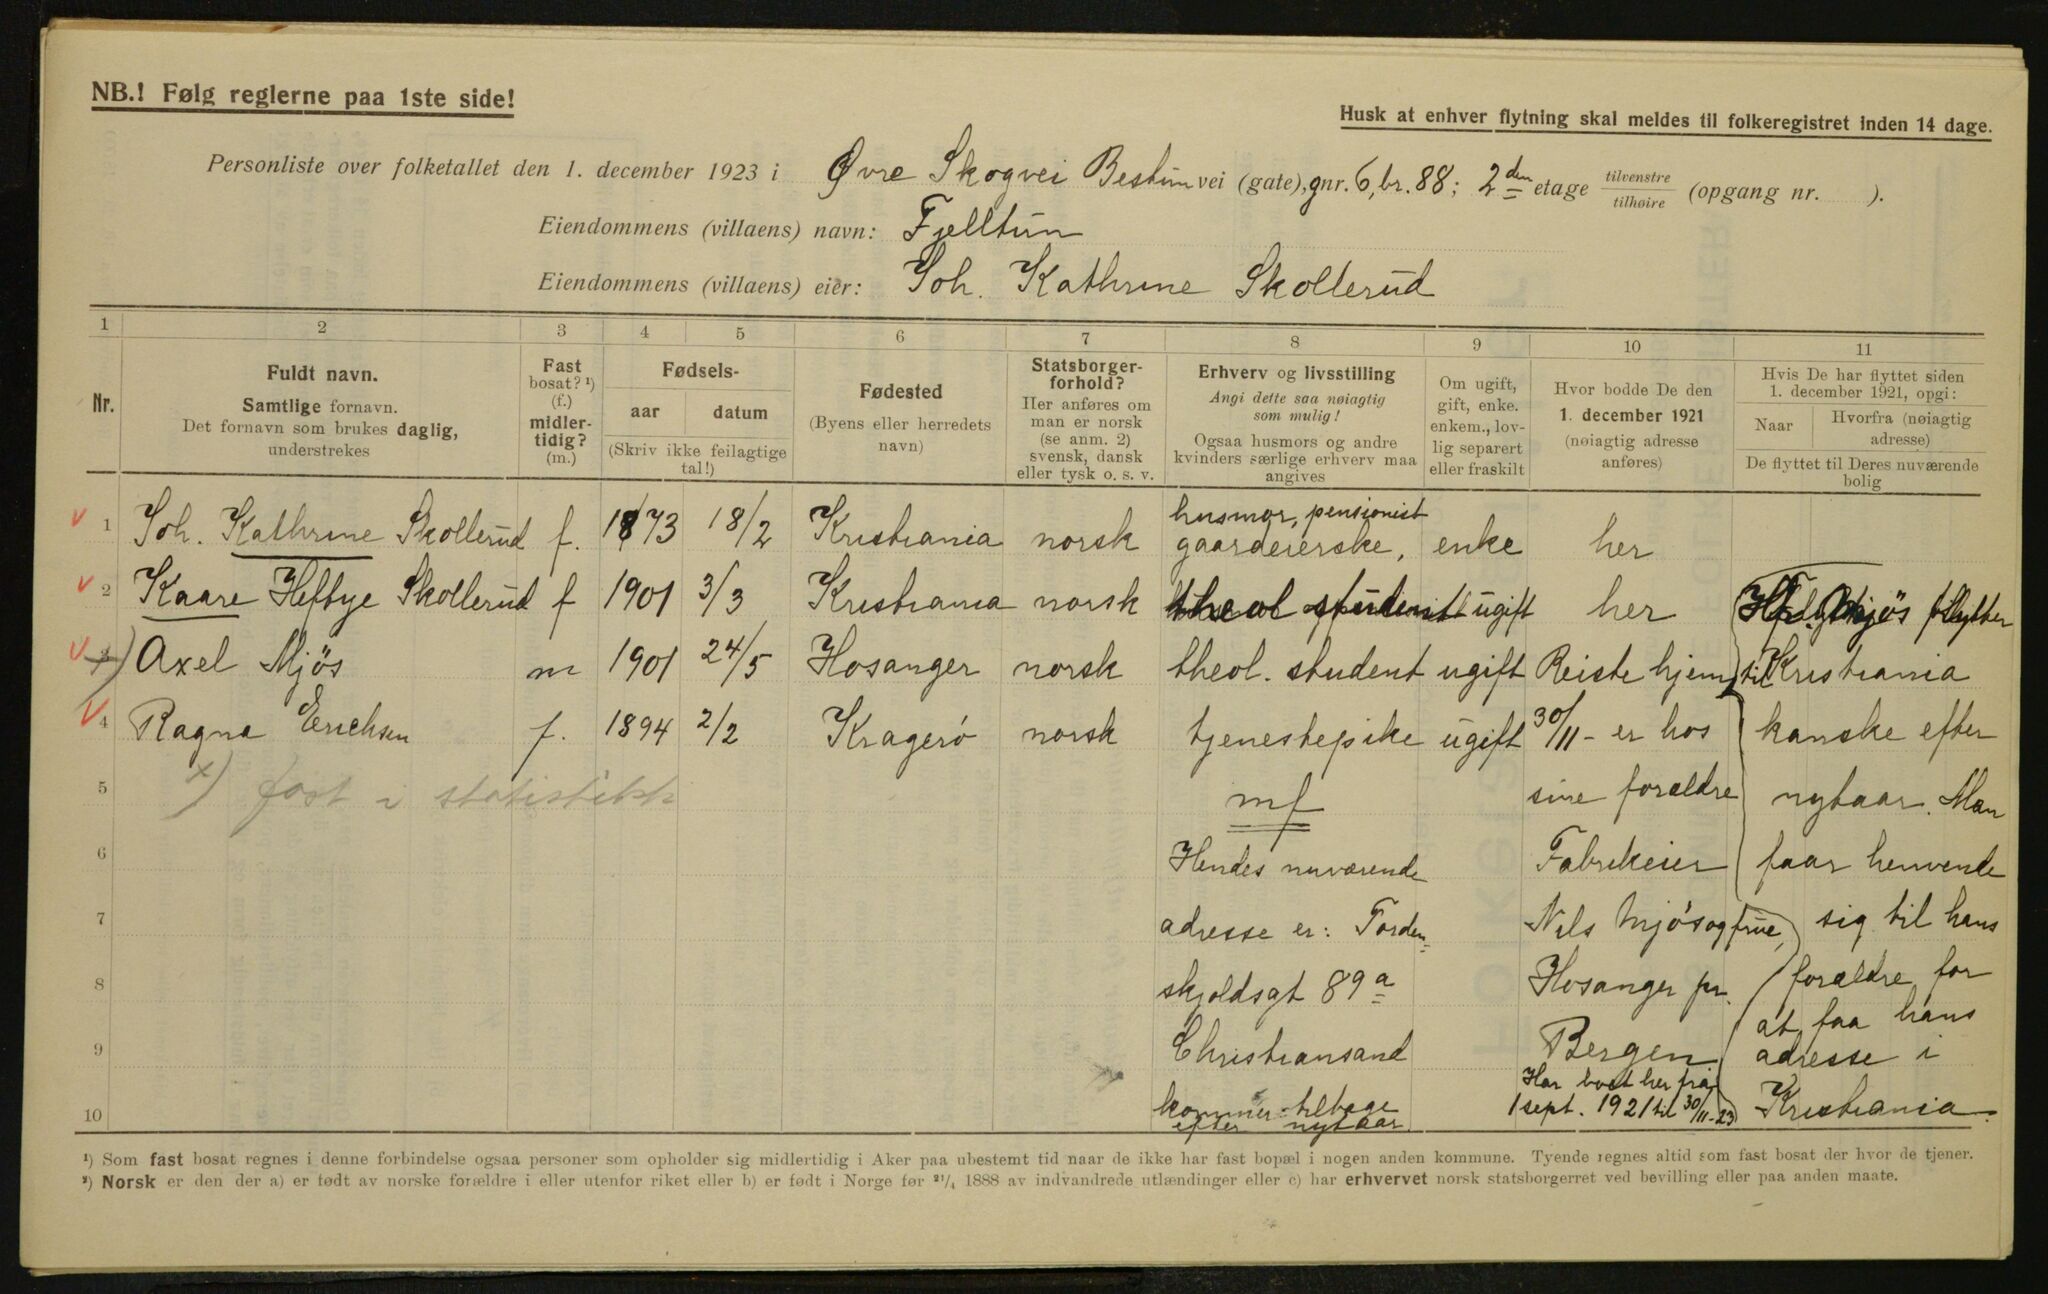 NB.! Følg reglerne paa 1ste side!
Husk at enhver flytning skal meldes til folkeregistret inden 14 dage.
Personliste over folketallet den 1. december 1923 i Øvre Skogvei Bestum vei (gate), gnr. 6, br. 88; 2den etage tilvenstre tilhøire (opgang nr. ).
Eiendommens (villaens) navn: Fjelltun
Eiendommens (villaens) eier: Joh. Kathrine Skollerud
1 2 3 4 5 6 7 8 9 10 11
Nr.
Fuldt navn.
Samtlige fornavn.
Det fornavn som brukes daglig,
understrekes
Fast
bosat? ¹)
(f.)
midler-
tidig?
(m.)
Fødsels-
aar datum
(Skriv ikke feilagtige
tal!)
Fødested
(Byens eller herredets
navn)
Statsborger-
forhold?
Her anføres om
man er norsk
(se anm. 2)
svensk, dansk
eller tysk o. s. v.
Erhverv og livsstilling
Angi dette saa nøiagtig
som mulig!
Ogsaa husmors og andre
kvinders særlige erhverv maa
angives
Om ugift,
gift, enke.
enkem., lov-
lig separert
eller fraskilt
Hvor bodde De den
1. december 1921
(nøiagtig adresse
anføres)
Hvis De har flyttet siden
1. december 1921, opgi:
Naar
Hvorfra (nøiagtig
adresse)
De flyttet til Deres nuværende
bolig
1 Joh. Kathrine Skollerud f. 1873 18/2 Kristiania norsk husmor, pensionist gaardeierske, enke her
2 Kaare Heftye Skollerud f 1901 3/3 Kristiania norsk theol student ugift her
3 x) Axel Mjös m 1901 24/5 Hosanger norsk theol. student ugift
4 Ragna Erichsen f. 1894 2/2 Kragerø norsk tjenestepike ugift
5
6
7
8
9
10
x) fast i statistikk
mf
Hendes nuværende
adresse er: Torden=
skjoldsgt 89a
Christiansand
kommer tilbage
efter nytaar.
Reiste hjem
30/11 - er hos
sine forældre
Fabrikeier
Nils Mjös og frue,
Hosanger pr.
Bergen
Har bodt her fra
1 sept. 1921 til 30/11-23
Mjös flytter
til Kristiania
kanske efter
nytaar. Man
faar henvende
sig til hans
forældre for
at faa hans
adresse i
Kristiania.
¹) Som fast bosat regnes i denne forbindelse ogsaa personer som opholder sig midlertidig i Aker paa ubestemt tid naar de ikke har fast bopæl i nogen anden kommune. Tyende regnes altid som fast bosat der hvor de tjener.
²) Norsk er den der a) er født av norske forældre i eller utenfor riket eller b) er født i Norge før 21/4 1888 av indvandrede utlændinger eller c) har erhvervet norsk statsborgerret ved bevilling eller paa anden maate.